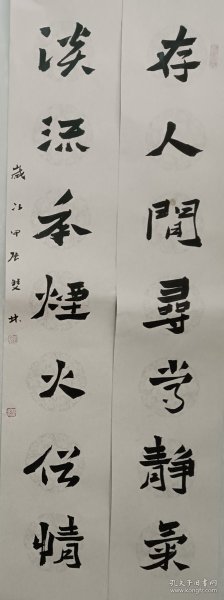 存人間尋常靜氣
淡流年煙火俗情
歲次甲辰
孔夫子旧书网